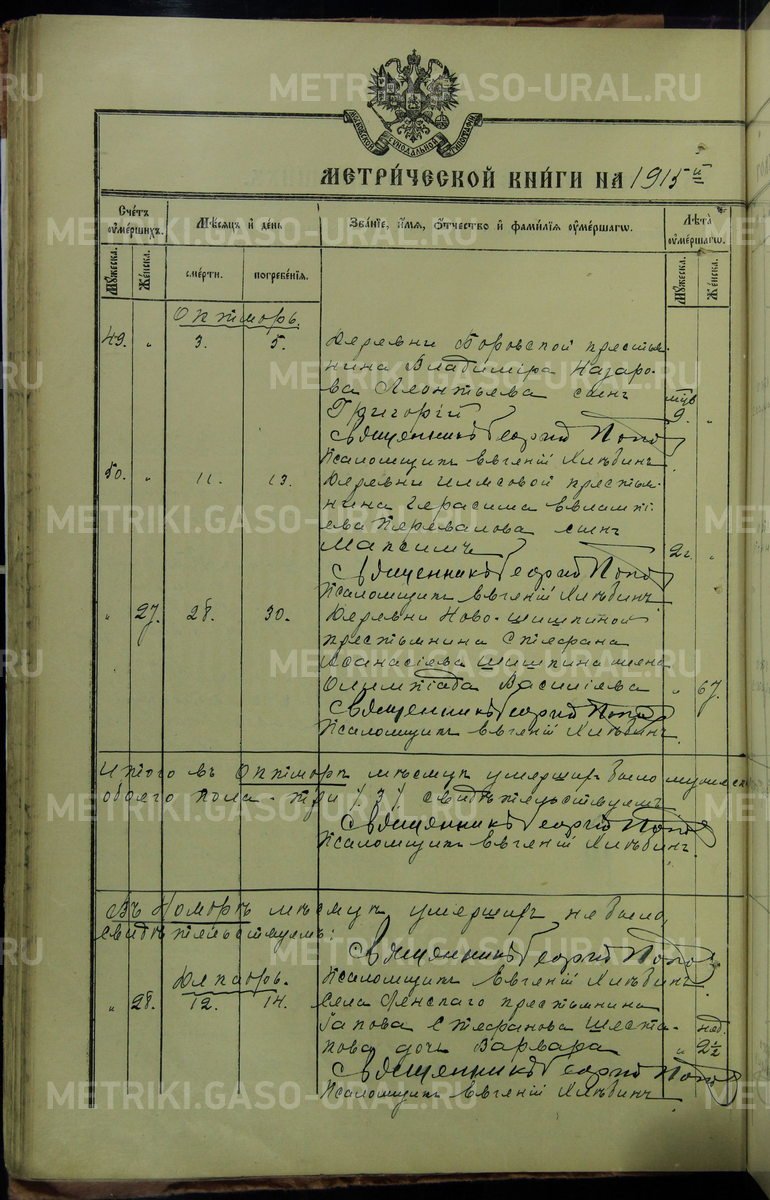 МОСКОВСКОЙ СѴНОДАЛЬНОЙ ТИПОГРАФІИ
МЕТРИ́ЧЕСКОЙ КНИ́ГИ НА 1915-й
Счетъ оумершихъ.
Мѣсяцъ и день
Званіе, имя, отчество и фамилія оумершагѡ.
Лѣта оумершагѡ.
Мужеска.
Женска.
смерти.
погребенія.
Мужеска.
Женска.
Октябрь.
49. " 3. 5. Деревни Боровской крестья-
нина Владиміра Назаро-
ва Леонтьева сынъ мцв
Григорій 9. "
Священникъ Георгій Попов
Псаломщикъ Евгеній Хлѣбинъ
50. " 11. 13. Деревни крестья-
нина Герасима Евлампі-
ева Перевалова сынъ
Максимъ 2г. "
Священникъ Георгій Попов
Псаломщикъ Евгеній Хлѣбинъ
" 27. 28. 30. Деревни Ново-Шишкиной
крестьянина Стефана
Аѳанасіева Шишкина жена
Олимпіада Василіева " 67.
Священникъ Георгій Попов
Псаломщикъ Евгеній Хлѣбинъ
Итого въ Октябрѣ мѣсяцѣ умершихъ было
обоего пола - три /3/ свидѣтельствуемъ
Священникъ Георгій Попов
Псаломщикъ Евгеній Хлѣбинъ.
Въ Ноябрѣ мѣсяцѣ умершихъ не было,
свидѣтельствуемъ:
Священникъ Георгій Попов
Декабрь. Псаломщикъ Евгеній Хлѣбинъ
" 28. 12. 14. Села Ленскаго крестьянина
Іакова Стефанова Шеста- нед.
кова дочь Варвара " 2½
Священникъ Георгій Попов
Псаломщикъ Евгеній Хлѣбинъ
METRIKI.GASO-URAL.RU